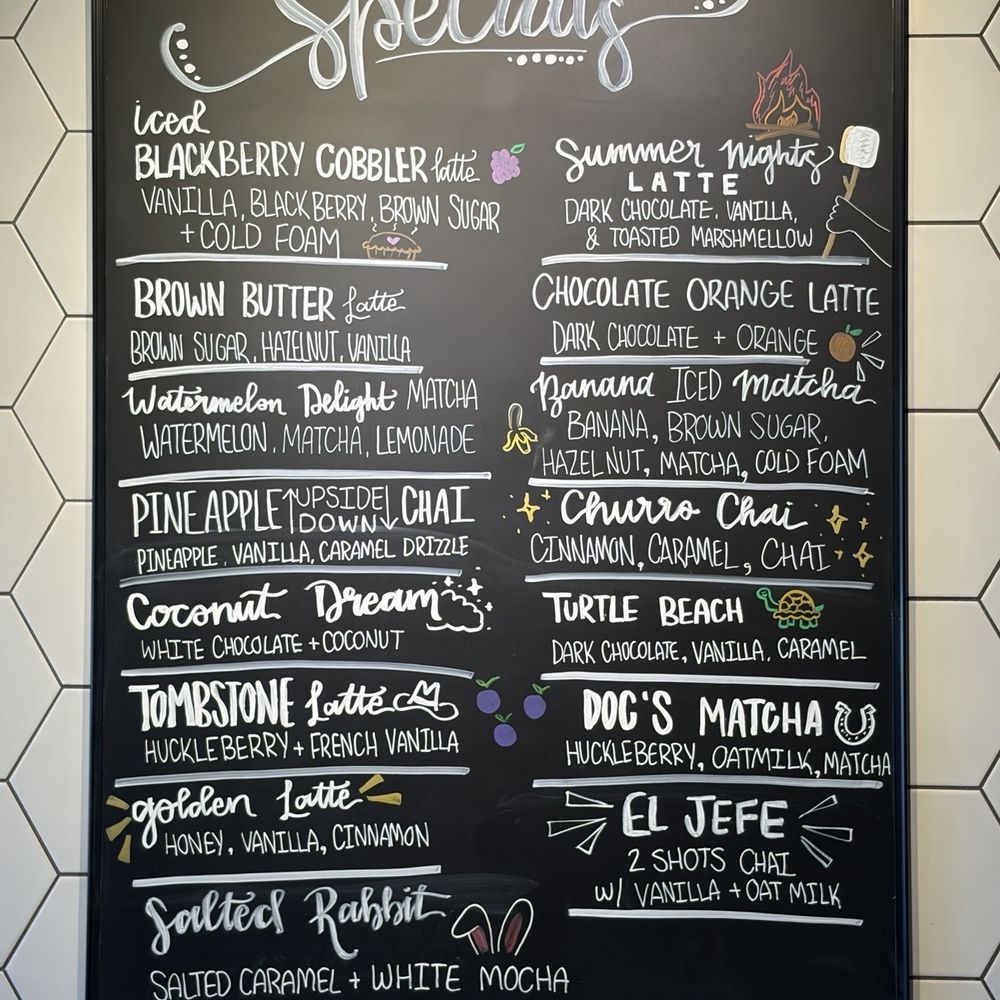 Specials
iced
BLACKBERRY COBBLER latte
VANILLA, BLACKBERRY, BROWN SUGAR
+ COLD FOAM
BROWN BUTTER Latte
BROWN SUGAR, HAZELNUT, VANILLA
Watermelon Delight MATCHA
WATERMELON, MATCHA, LEMONADE
PINEAPPLE ↑UPSIDE DOWN↓ CHAI
PINEAPPLE, VANILLA, CARAMEL DRIZZLE
Coconut Dream
WHITE CHOCOLATE + COCONUT
TOMBSTONE Latte
HUCKLEBERRY + FRENCH VANILLA
golden Latte
HONEY, VANILLA, CINNAMON
Salted Rabbit
SALTED CARAMEL + WHITE MOCHA
Summer nights
LATTE
DARK CHOCOLATE, VANILLA,
& TOASTED MARSHMELLOW
CHOCOLATE ORANGE LATTE
DARK CHOCOLATE + ORANGE
Banana ICED Matcha
BANANA, BROWN SUGAR,
HAZELNUT, MATCHA, COLD FOAM
Churro Chai
CINNAMON, CARAMEL, CHAI
TURTLE BEACH
DARK CHOCOLATE, VANILLA, CARAMEL
DOC'S MATCHA
HUCKLEBERRY, OATMILK, MATCHA
EL JEFE
2 SHOTS CHAI
W/ VANILLA + OAT MILK